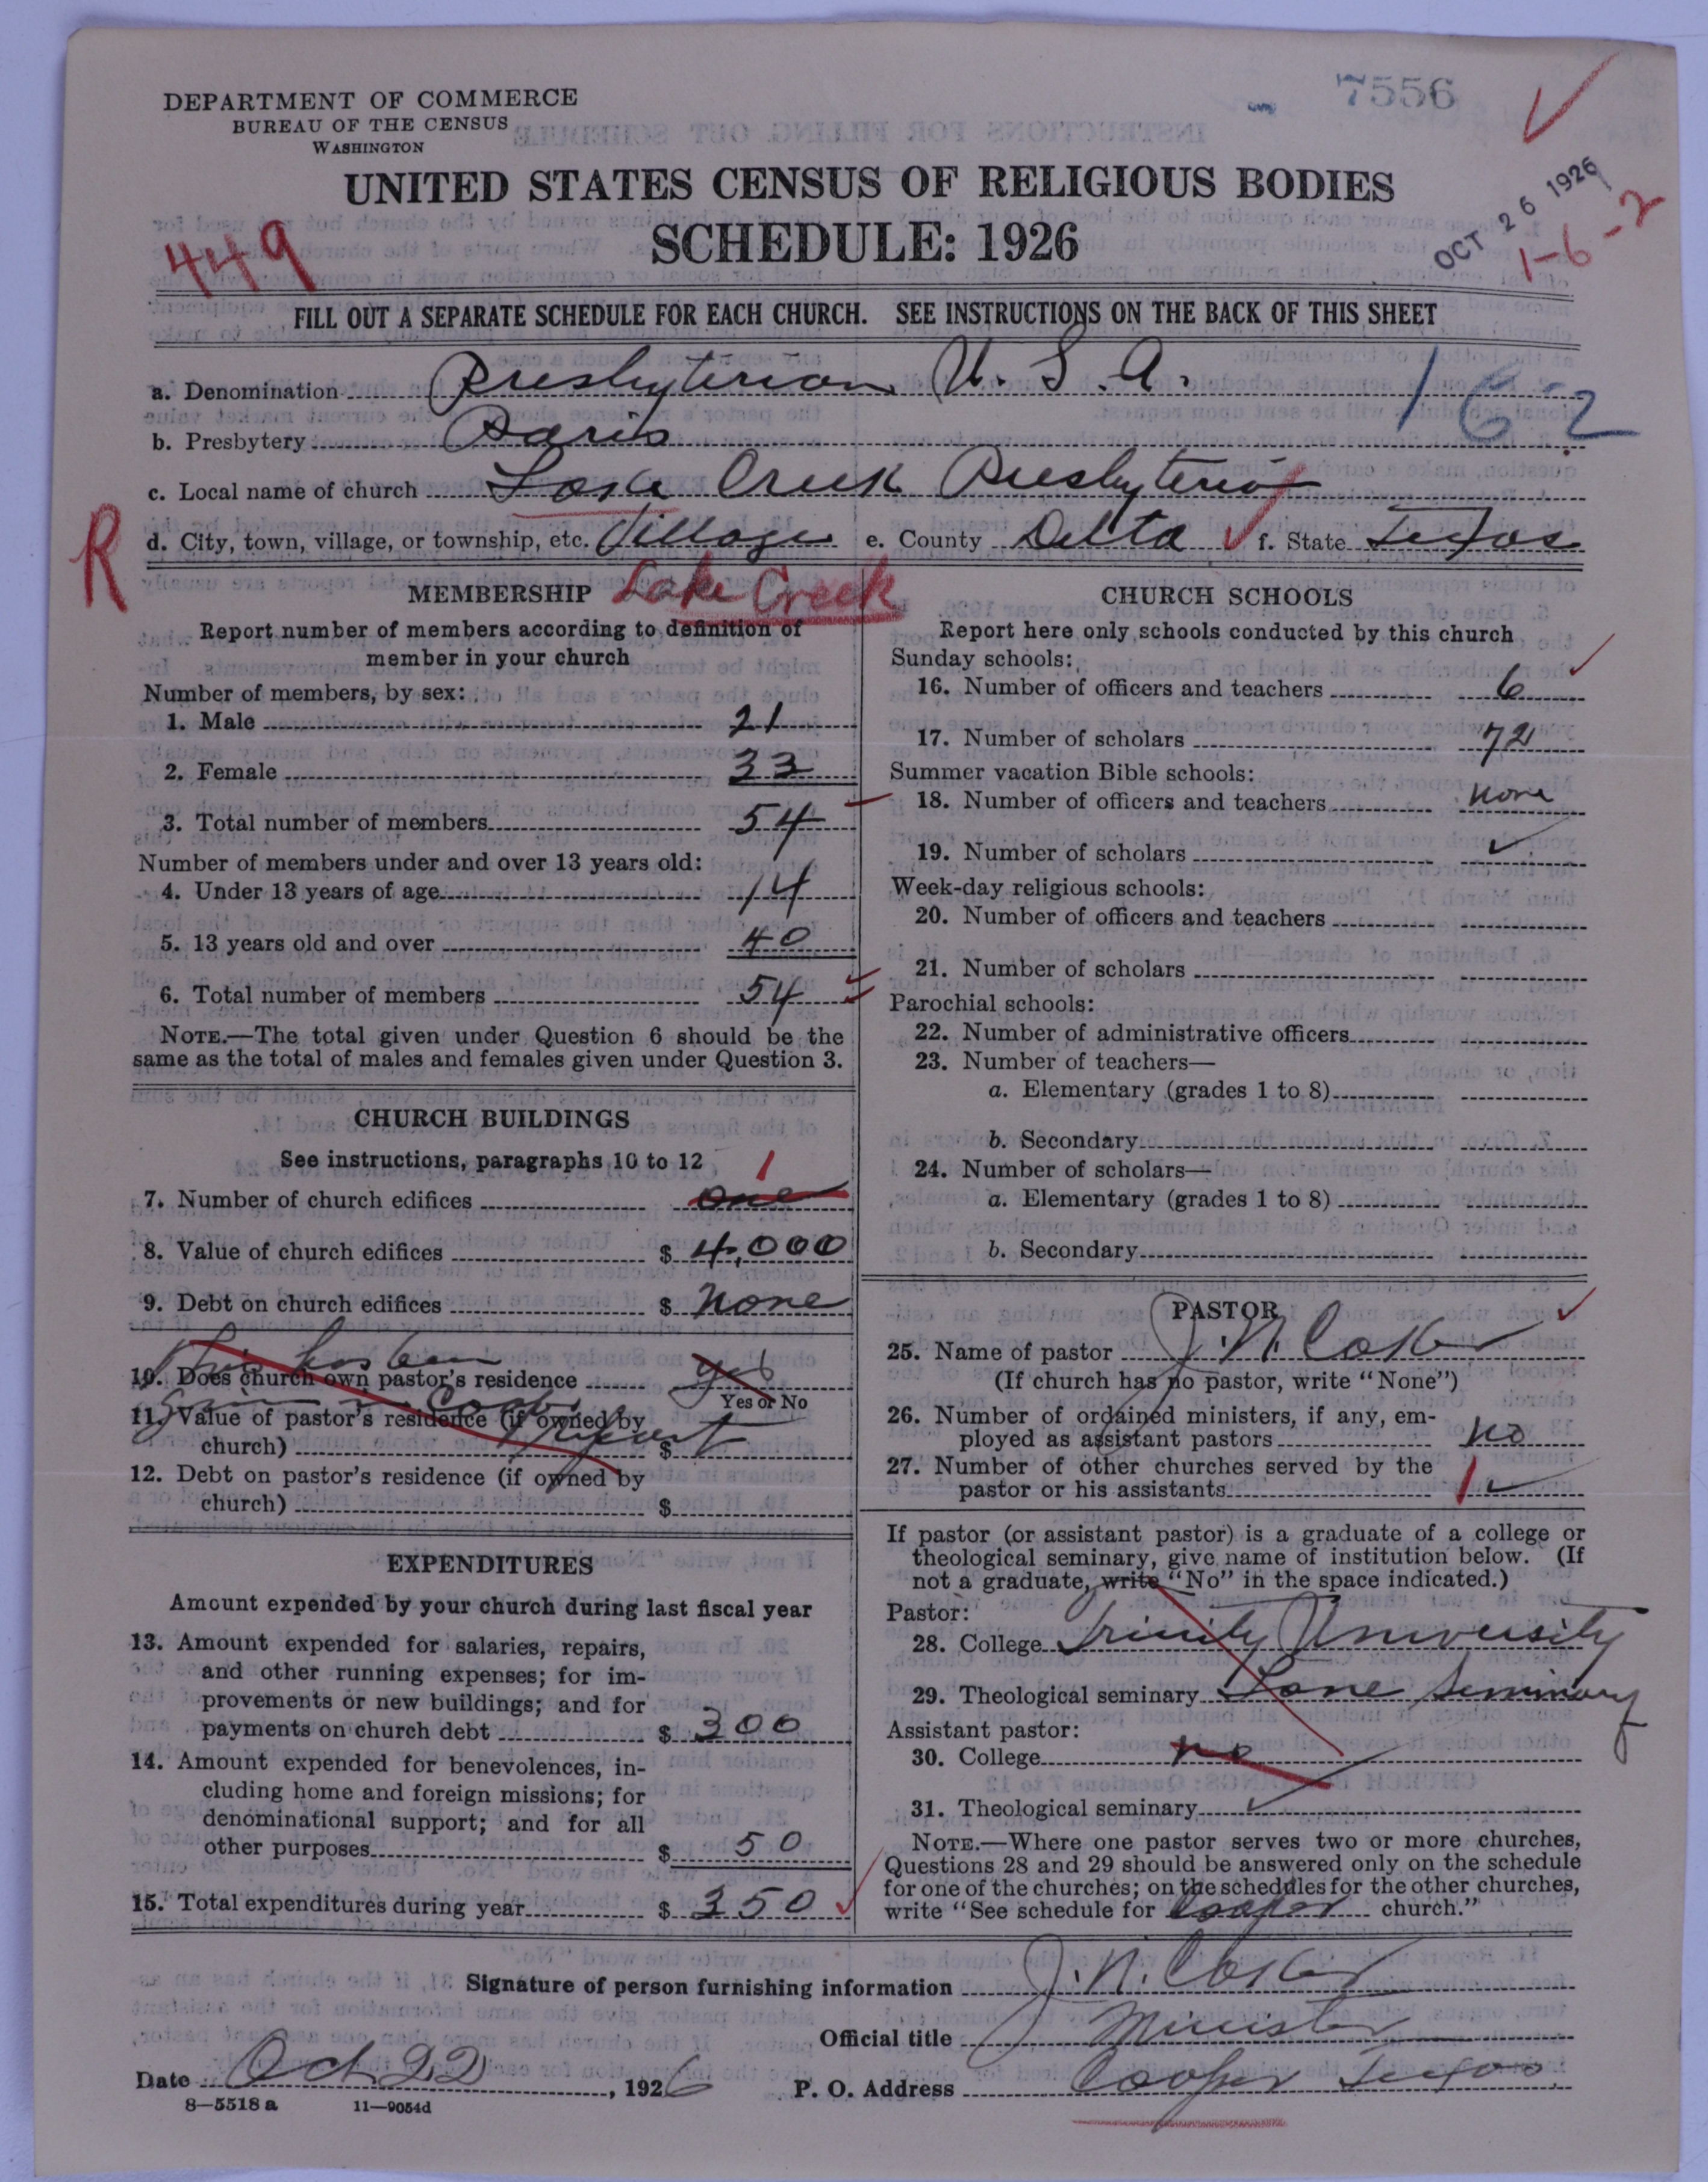 7556
DEPARTMENT OF COMMERCE
BUREAU OF THE CENSUS
WASHINGTON
UNITED STATES CENSUS OF RELIGIOUS BODIES
SCHEDULE: 1926
OCT 26 1926
1-6-2
449
FILL OUT A SEPARATE SCHEDULE FOR EACH CHURCH. SEE INSTRUCTIONS ON THE BACK OF THIS SHEET
a. Denomination Presbyterian U. S. A. 162
b. Presbytery Paris
c. Local name of church Lake Creek Presbyterian
R
d. City, town, village, or township, etc. Village e. County Delta f. State Texas
Lake Creek
MEMBERSHIP
Report number of members according to definition of
member in your church
Number of members, by sex:
1. Male 21
2. Female 33
3. Total number of members 54
Number of members under and over 13 years old:
4. Under 13 years of age 14
5. 13 years old and over 40
6. Total number of members 54
NOTE.—The total given under Question 6 should be the
same as the total of males and females given under Question 3.
CHURCH BUILDINGS
See instructions, paragraphs 10 to 12
1
7. Number of church edifices one
8. Value of church edifices $ 4,000
9. Debt on church edifices $ None
This has been
10. Does church own pastor's residence yes
Yes or No
given in Cooper
11. Value of pastor's residence (if owned by
church) $
Report
12. Debt on pastor's residence (if owned by
church) $
EXPENDITURES
Amount expended by your church during last fiscal year
13. Amount expended for salaries, repairs,
and other running expenses; for im-
provements or new buildings; and for
payments on church debt $ 300
14. Amount expended for benevolences, in-
cluding home and foreign missions; for
denominational support; and for all
other purposes $ 50
15. Total expenditures during year $ 350
CHURCH SCHOOLS
Report here only schools conducted by this church
Sunday schools:
16. Number of officers and teachers 6
17. Number of scholars 72
Summer vacation Bible schools:
18. Number of officers and teachers None
19. Number of scholars
Week-day religious schools:
20. Number of officers and teachers
21. Number of scholars
Parochial schools:
22. Number of administrative officers
23. Number of teachers—
a. Elementary (grades 1 to 8)
b. Secondary
24. Number of scholars—
a. Elementary (grades 1 to 8)
b. Secondary
PASTOR
25. Name of pastor J. N.
(If church has no pastor, write "None")
26. Number of ordained ministers, if any, em-
ployed as assistant pastors No
27. Number of other churches served by the
pastor or his assistants 1
If pastor (or assistant pastor) is a graduate of a college or
theological seminary, give name of institution below. (If
not a graduate, write "No" in the space indicated.)
Pastor:
28. College Trinity University
29. Theological seminary Lane Seminary
Assistant pastor:
30. College No
31. Theological seminary
NOTE.—Where one pastor serves two or more churches,
Questions 28 and 29 should be answered only on the schedule
for one of the churches; on the schedules for the other churches,
write "See schedule for Cooper church."
Signature of person furnishing information J. N.
Official title Minister
Date Oct 22, 1926 P. O. Address Cooper Texas
8—5518 a 11—9054d